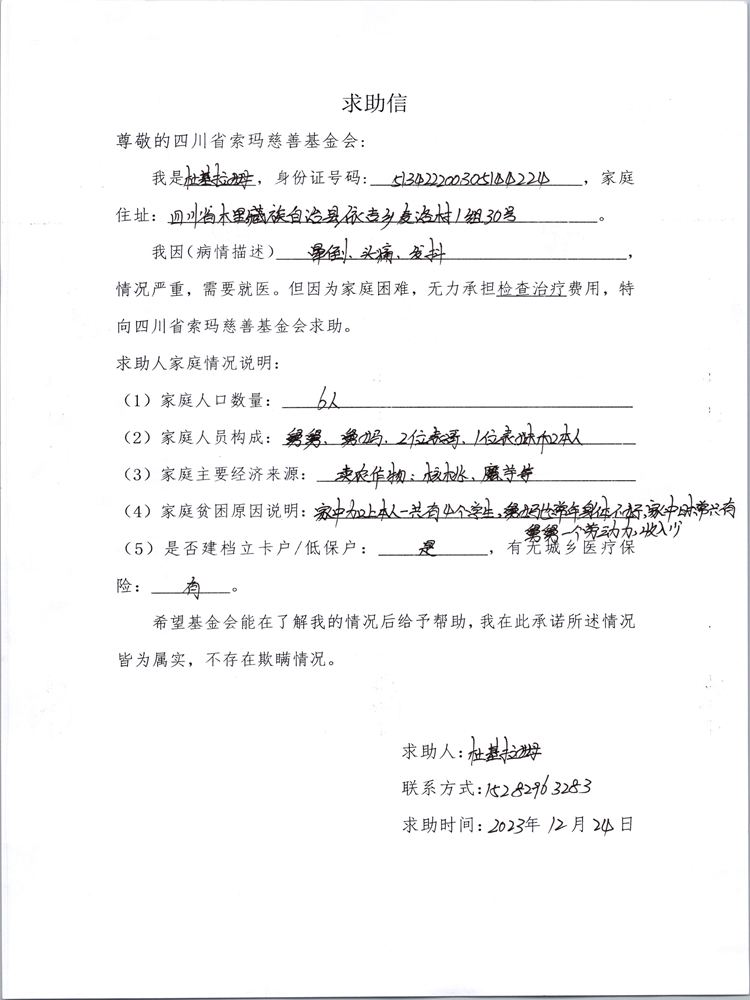 求助信
尊敬的四川省索玛慈善基金会:
我是杜基拉姆, 身份证号码: 513422200305144224, 家庭
住址: 四川省木里藏族自治县依吉乡麦洛村1组30号。
我因(病情描述) 晕倒、头痛、发抖,
情况严重, 需要就医。但因为家庭困难, 无力承担检查治疗费用, 特
向四川省索玛慈善基金会求助。
求助人家庭情况说明:
(1) 家庭人口数量: 6人
(2) 家庭人员构成: 舅舅、舅妈、2位表哥、1位表妹和本人
(3) 家庭主要经济来源: 卖农作物: 核桃、等
(4) 家庭贫困原因说明: 家中加上本人一共有4个学生, 舅妈常年身体不好, 家中只有
舅舅一个劳动力, 收入少
(5) 是否建档立卡户/低保户: 是, 有无城乡医疗保
险: 有。
希望基金会能在了解我的情况后给予帮助, 我在此承诺所述情况
皆为属实, 不存在欺瞒情况。
求助人: 杜基拉姆
联系方式: 15282963283
求助时间: 2023年 12月 24日